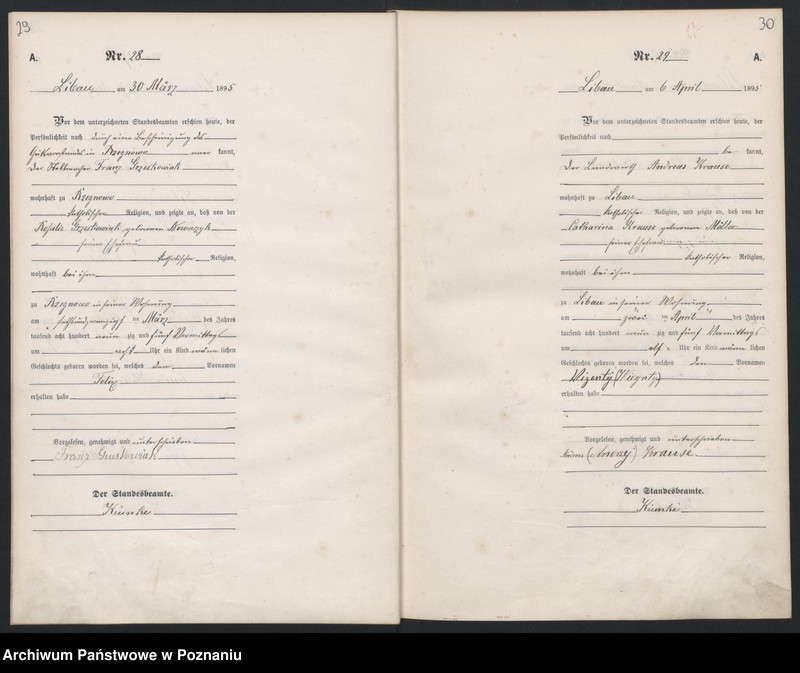 29
A.
Nr. 28
Libau am 30 März 1895
Vor dem unterzeichneten Standesbeamten erschien heute, der
Persönlichkeit nach durch eine Bescheinigung des
Gutsvorstandes in Rzegnowo aner kannt,
der Stellmacher Franz Grzeskowiak
wohnhaft zu Rzegnowo
katholischer Religion, und zeigte an, daß von der
Rosalie Grzeskowiak geborenen Nowaczyk
seiner Ehefrau
katholischer Religion,
wohnhaft bei ihm
zu Rzegnowo in seiner Wohnung
am sechsundzwanzigsten März des Jahres
tausend acht hundert neun zig und fünf Vormittags
um acht Uhr ein Kind männlichen
Geschlechts geboren worden sei, welches den Vornamen
Felix
erhalten habe
Vorgelesen, genehmigt und unterschrieben
Franz Grzeskowiak
Der Standesbeamte.
30
Nr. 29
A.
Libau am 6 April 1895
Vor dem unterzeichneten Standesbeamten erschien heute, der
Persönlichkeit nach
be kannt,
der Landwirth Andreas Krause
wohnhaft zu Libau
katholischer Religion, und zeigte an, daß von der
Catharina Krause geborenen Müller
seiner Ehefrau
katholischer Religion,
wohnhaft bei ihm
zu Libau in seiner Wohnung
am zwei April des Jahres
tausend acht hundert neun zig und fünf Vormittags
um elf Uhr ein Kind männlichen
Geschlechts geboren worden sei, welches den Vornamen
Wizenty
erhalten habe
Vorgelesen, genehmigt und unterschrieben
Krause
Der Standesbeamte.
Archiwum Państwowe w Poznaniu